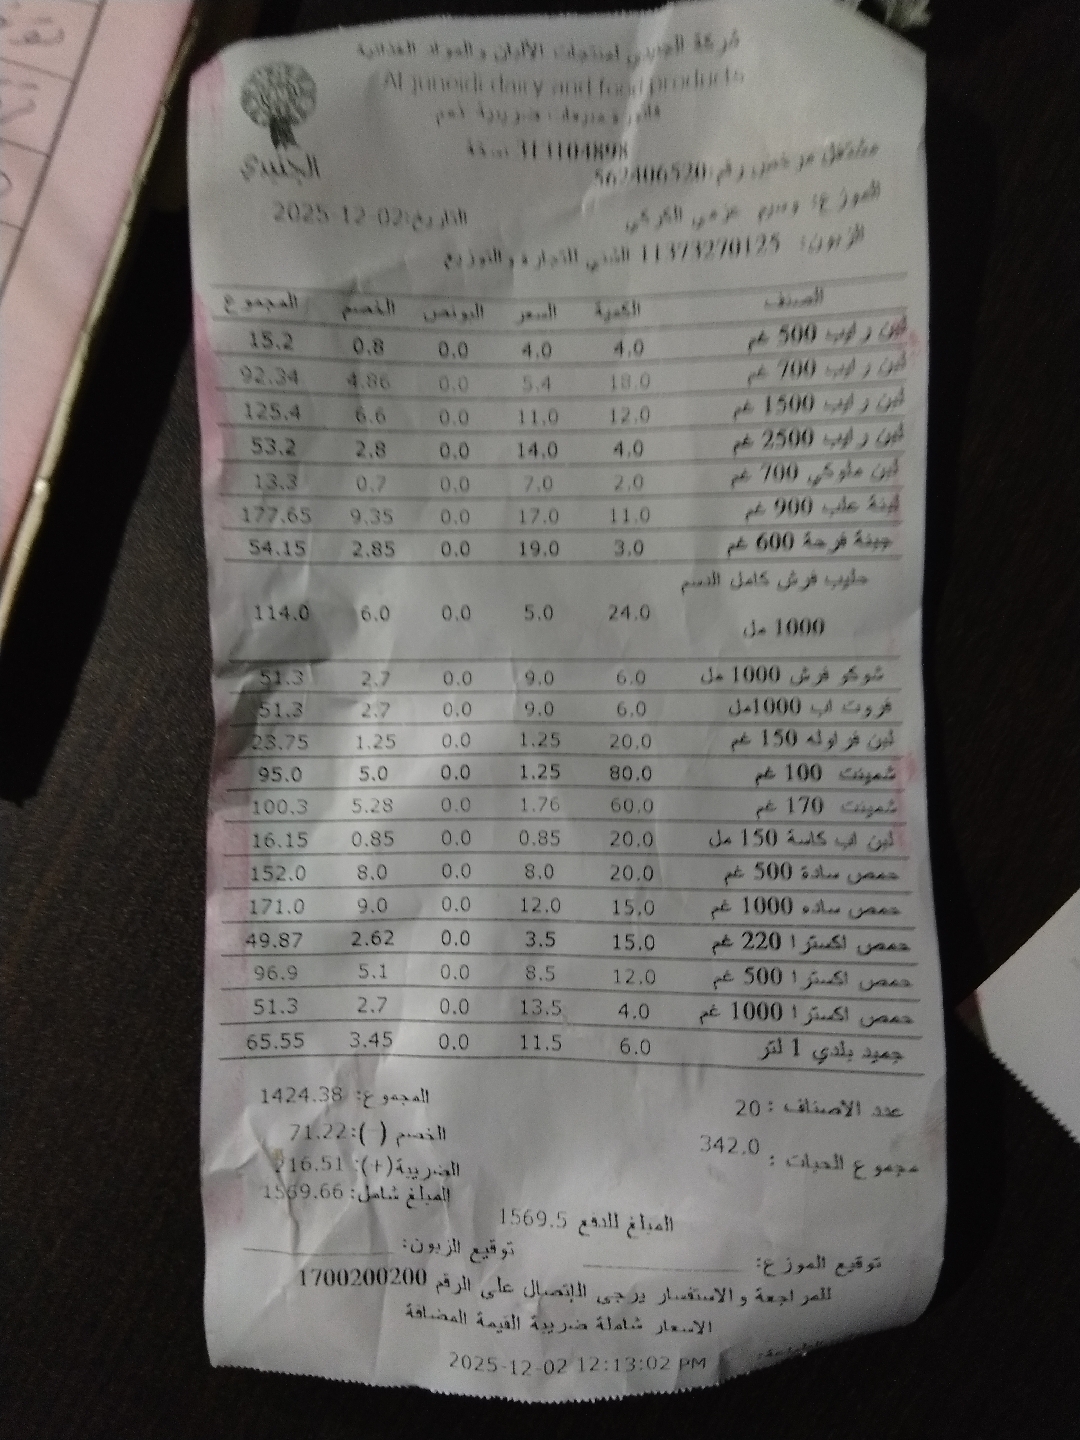 شركة الجنيدي لمنتجات الألبان والمواد الغذائية
Al juneidi dairy and food products
الجنيدي
313104898 نسخة
مشتغل مرخص رقم: 562406520
الموزع: وسيم عزمي الكركي
التاريخ: 2025-12-02
الزبون: 11373270125 الشني التجارة والتوزيع
الصنف الكمية السعر البونص الخصم المجموع
لبن رايب 500 غم 4.0 4.0 0.0 0.8 15.2
لبن رايب 700 غم 18.0 5.4 0.0 4.86 92.34
لبن رايب 1500 غم 12.0 11.0 0.0 6.6 125.4
لبن رايب 2500 غم 4.0 14.0 0.0 2.8 53.2
لبن ملوكي 700 غم 2.0 7.0 0.0 0.7 13.3
لبنة علب 900 غم 11.0 17.0 0.0 9.35 177.65
جبنة فرحة 600 غم 3.0 19.0 0.0 2.85 54.15
حليب فرش كامل الدسم
1000 مل 24.0 5.0 0.0 6.0 114.0
شوكو فرش 1000 مل 6.0 9.0 0.0 2.7 51.3
فروت اب 1000مل 6.0 9.0 0.0 2.7 51.3
لبن فراوله 150 غم 20.0 1.25 0.0 1.25 23.75
شمينت 100 غم 80.0 1.25 0.0 5.0 95.0
شمينت 170 غم 60.0 1.76 0.0 5.28 100.3
لبن اب كاسة 150 مل 20.0 0.85 0.0 0.85 16.15
حمص سادة 500 غم 20.0 8.0 0.0 8.0 152.0
حمص ساده 1000 غم 15.0 12.0 0.0 9.0 171.0
حمص اكسترا 220 غم 15.0 3.5 0.0 2.62 49.87
حمص اكسترا 500 غم 12.0 8.5 0.0 5.1 96.9
حمص اكسترا 1000 غم 4.0 13.5 0.0 2.7 51.3
جميد بلدي 1 لتر 6.0 11.5 0.0 3.45 65.55
المجموع: 1424.38
عدد الاصناف : 20
الخصم (-): 71.22
مجموع الحبات : 342.0
الضريبة(+): 216.51
المبلغ شامل: 1569.66
المبلغ للدفع 1569.5
توقيع الزبون:
توقيع الموزع:
للمراجعة والاستفسار يرجى الإتصال على الرقم 1700200200
الاسعار شاملة ضريبة القيمة المضافة
2025-12-02 12:13:02 PM